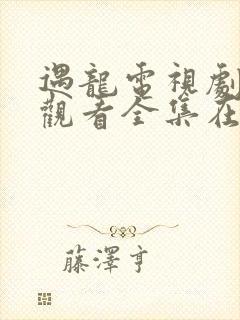 遇龍電視劇
觀看全集在
藤澤亨